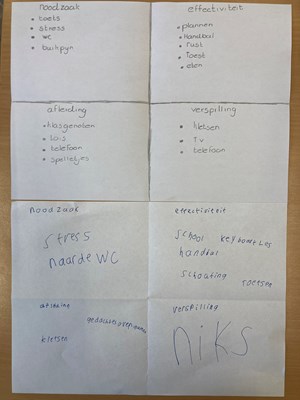 noodzaak
• toets
• stress
• wc
• buikpijn
effectiviteit
• plannen
• handbal
• rust
• Toest
• eten
afleiding
• klasgenoten
• telefoon
• spelletjes
verspilling
• kletsen
• TV
• telefoon
noodzaak
stress
naar de WC
effectiviteit
school keyboard Les
handbal
schouting
toetsen
kletsen
verspilling
niks